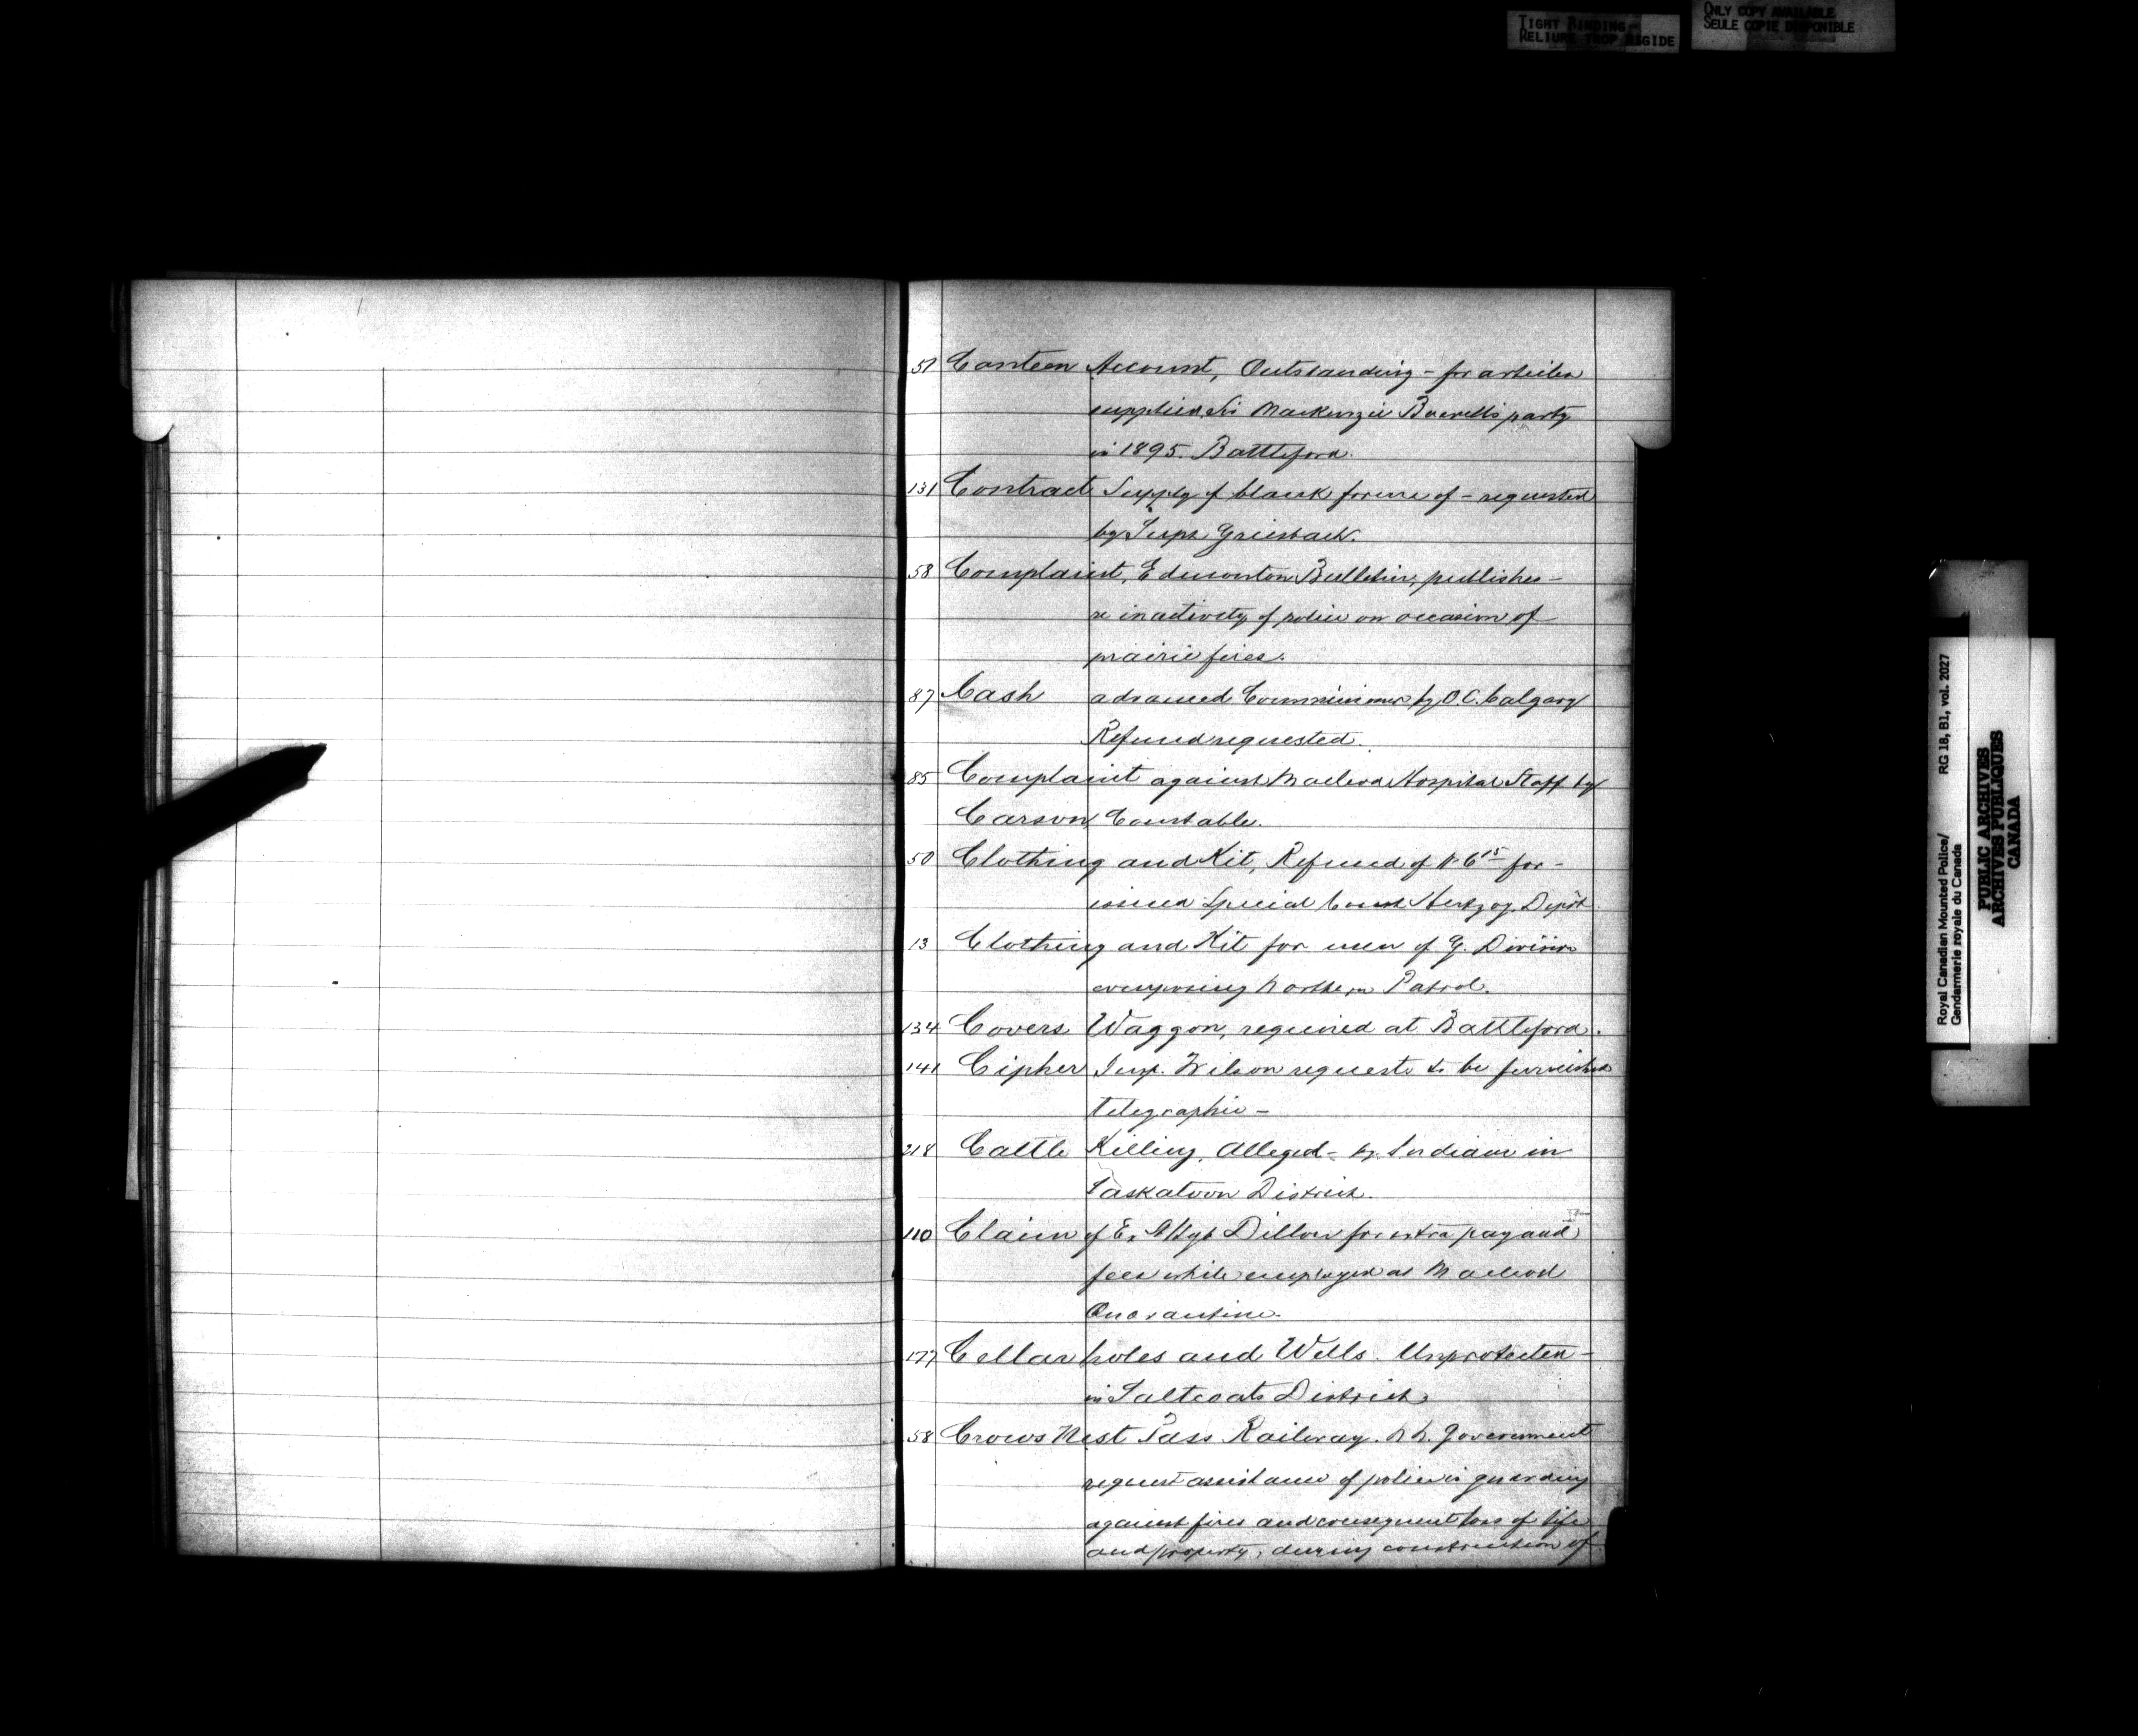 TIGHT BINDING -
RELIURE TROP RIGIDE
ONLY COPY AVAILABLE
SEULE COPIE DISPONIBLE
51 Canteen Account, Outstanding - for articles
supplied Sir Mackenzie Bowell's party
in 1895. Battleford.
131 Contract Supply of blank forms of - requested
by Supt Griesbach.
58 Complaint, Edmonton Bulletin, publishes -
re inactivity of police on occasion of
prairie fires.
87 Cash advanced Commissioner by O.C. Calgary
Refund requested.
85 Complaint against Macleod Hospital Staff by
Carson, Constable.
50 Clothing and Kit, Refund of $6 15 for -
issued Special Const Hertzog, Depôt.
13 Clothing and Kit for men of G. Division
composing Northern Patrol.
134 Covers Waggon, required at Battleford.
141 Cipher Insp. Wilson requests to be furnished
telegraphic -
218 Cattle Killing, Alleged - by Indians in
Saskatoon District.
110 Claim of Ex S/Sgt Dillon for extra pay and
fees while employed at Macleod
Quarantine.
177 Cellar holes and Wells. Unprotected -
in Saltcoats District
58 Crows Nest Pass Railway. Government
request assistance of police in guarding
against fires and consequent loss of life
and property, during construction of
Royal Canadian Mounted Police/ RG 18, B1, vol. 2027
Gendarmerie royale du Canada
PUBLIC ARCHIVES
ARCHIVES PUBLIQUES
CANADA